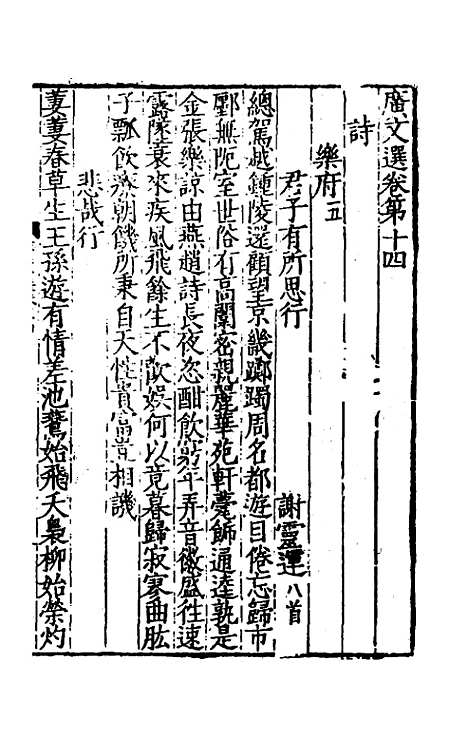 廣文選卷第十四
詩
樂府五
君子有所思行 謝靈運八首
總駕越鍾陵還顧望京畿躑躅周名都遊目倦忘歸市
鄽無阨室世俗有高闈密親麗華苑軒甍飾通逵孰是
金張樂諒由燕趙詩長夜恣酣飲窮年弄音徽盛往速
露墜衰來疾風飛餘生不歡娛何以竟暮歸寂寥曲肱
子瓢飲療朝饑所秉自天性貧富豈相譏
悲哉行
萋萋春草生王孫遊有情差池鷰始飛夭裊柳始榮灼